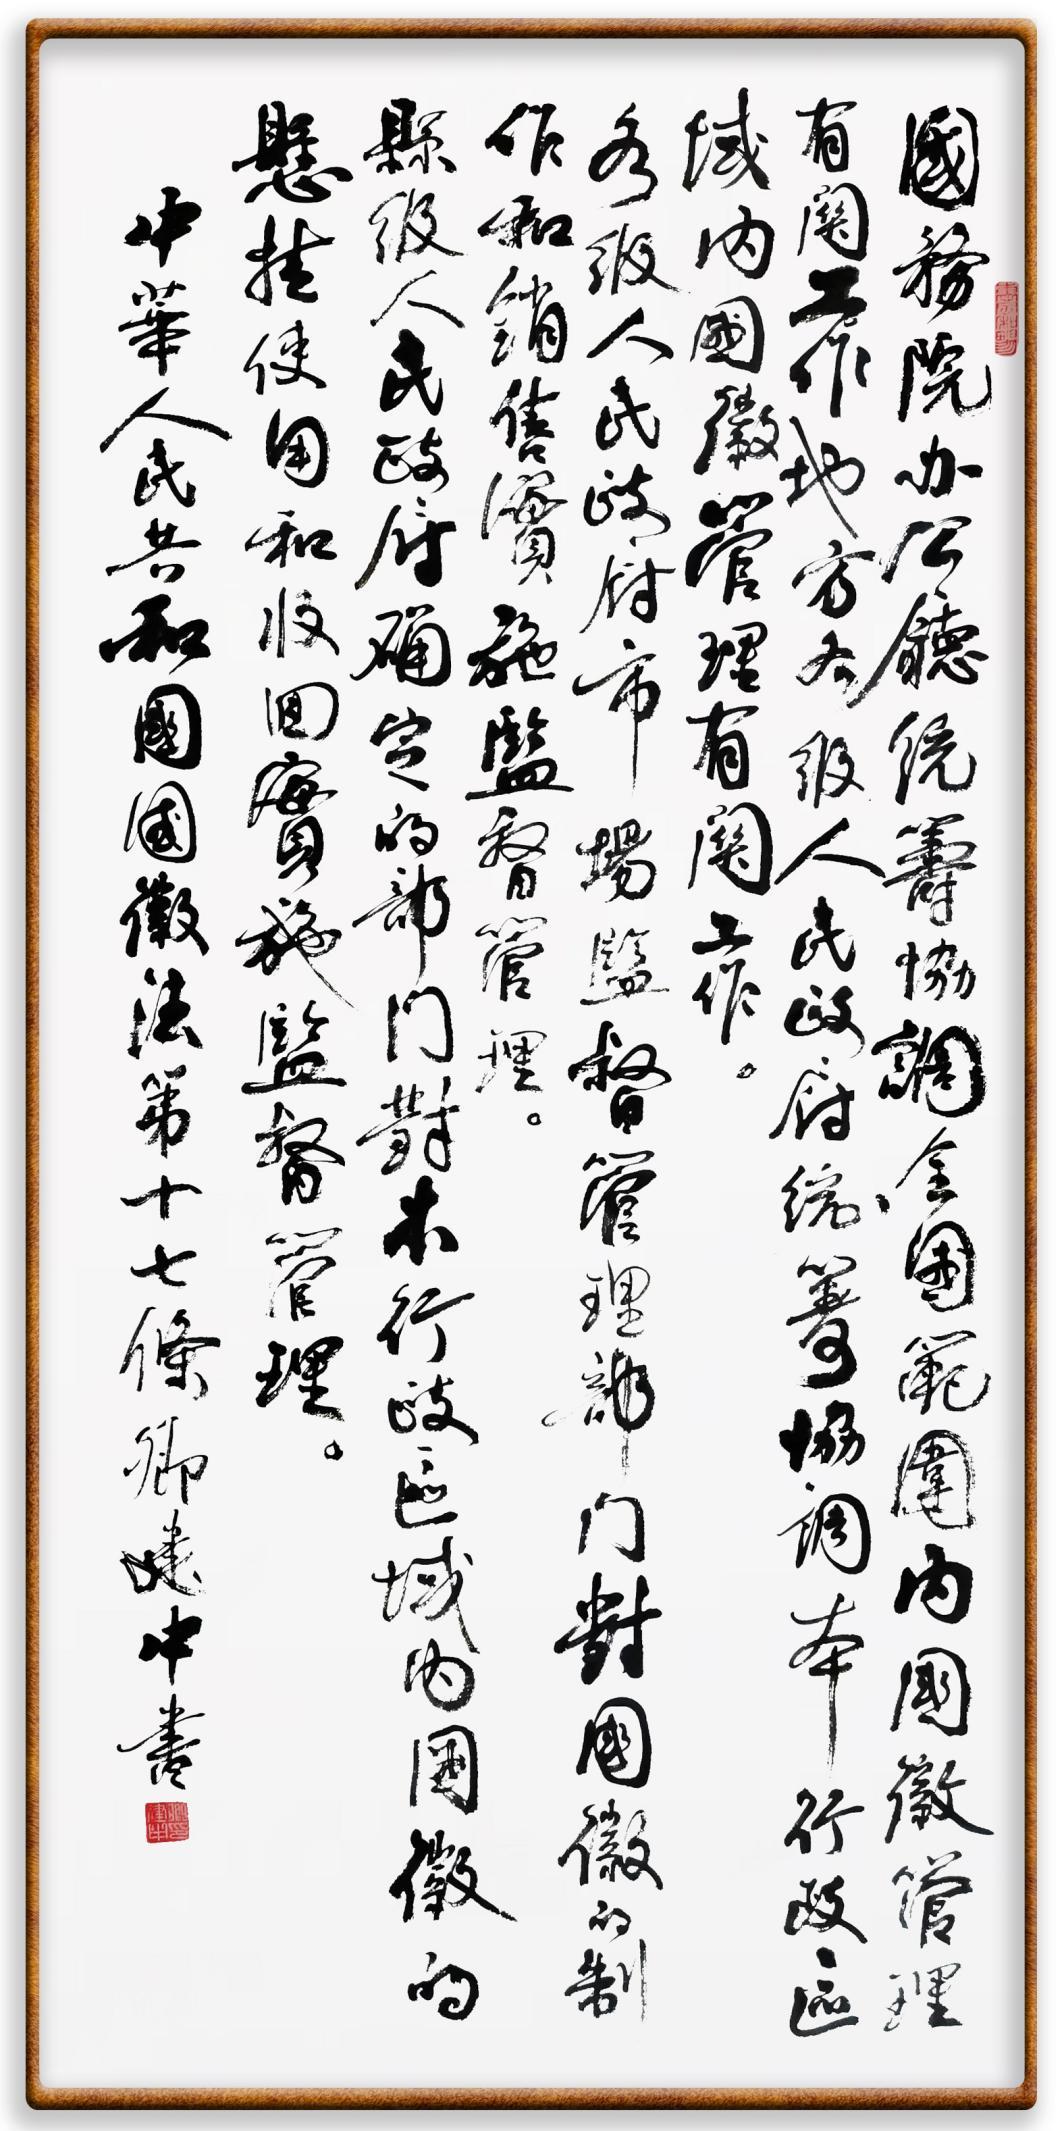 國務院办公廳統籌協調全國範圍内國徽管理
有関工作地方各级人民政府統籌協調本行政區
域内國徽管理有関工作。
各级人民政府市場監督管理部门對國徽的制
作和銷售實施監督管理。
縣级人民政府确定的部门對本行政區域内國徽的
懸挂使用和收回實施監督管理。
中華人民共和國國徽法第十七條卿建中書